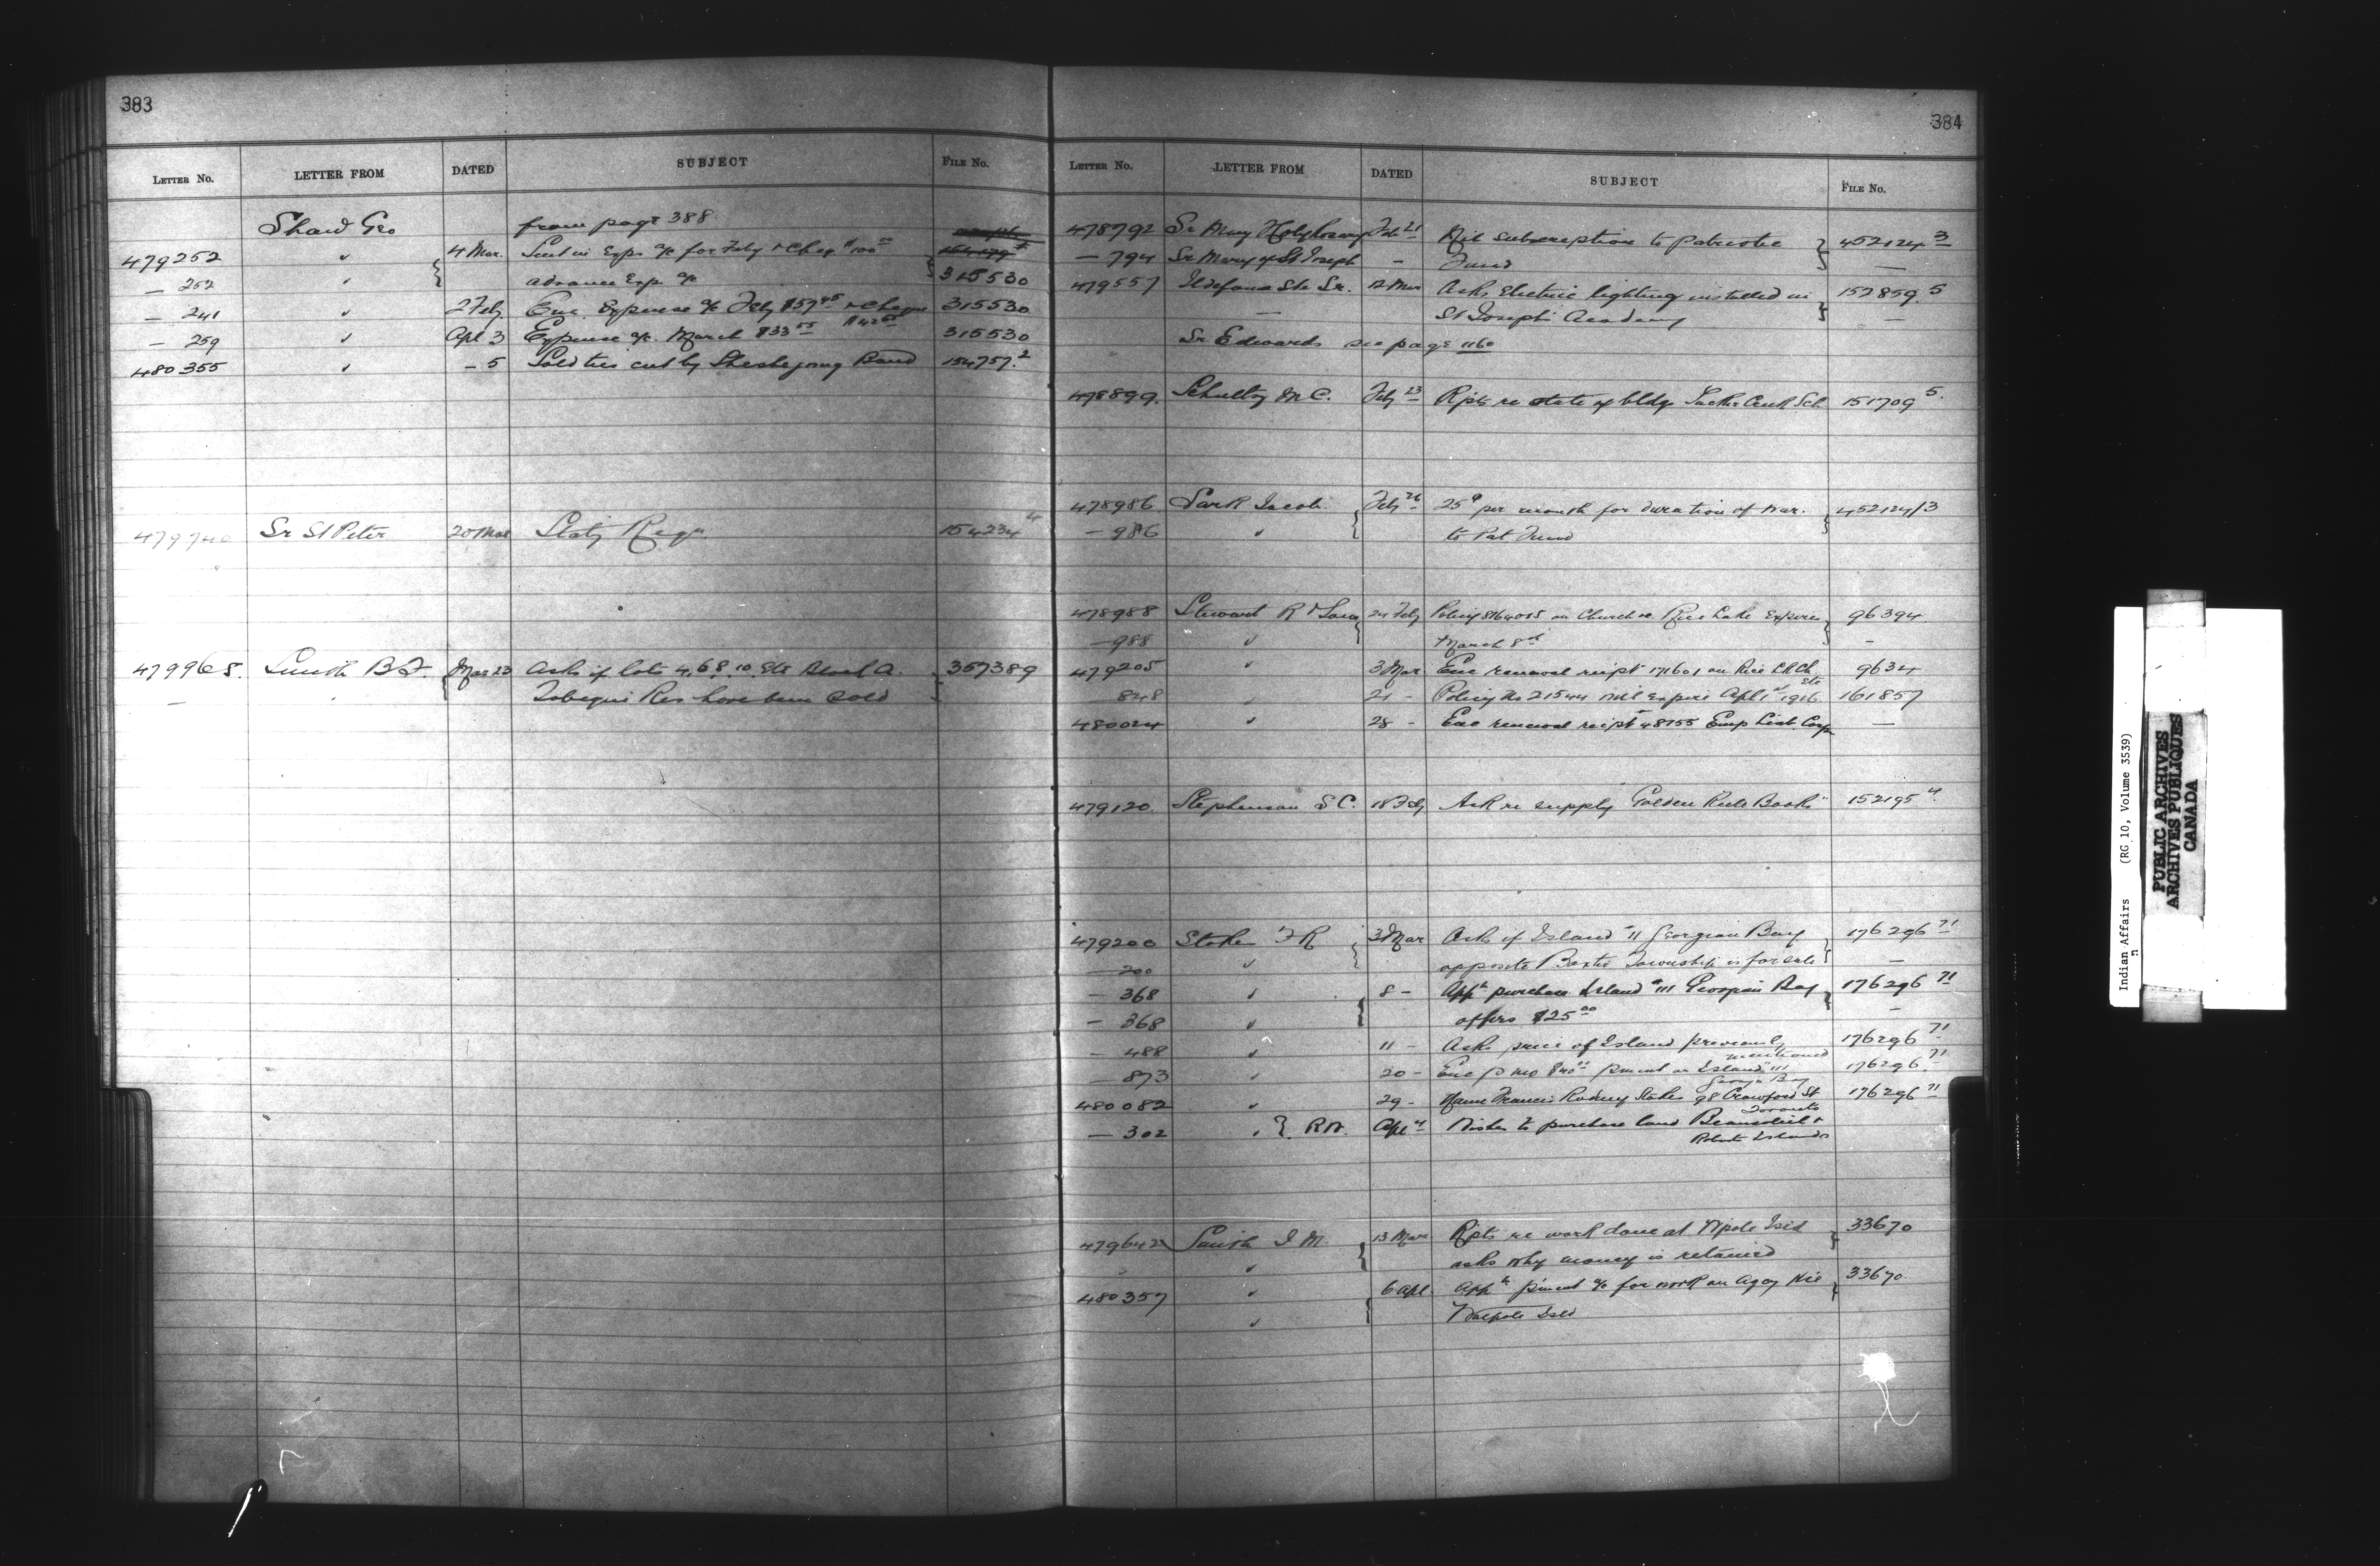 383
LETTER NO. LETTER FROM DATED SUBJECT FILE NO.
Shaw Geo from page 388
479252 " 4 Mar. Exps a/c for Feby & Cheq $100.00
— 252 " advance Exp a/c 315530
— 241 " 2 Feby Enc. Expense a/c Feby $57.45 & Cheque 315530
— 259 " Apl 3 Expense a/c March $33.55 315530
480355 " – 5 Sold ties cut by Band 154757.2
479740 Sr St Peter 20 Mar Staty Reqn 154234 4
479968. Smith B. Mar 23 Asks if lots 4, 6, 8, 10, Etc Block A. 357389
— " Tobique Res have been sold
384
LETTER NO. LETTER FROM DATED SUBJECT FILE NO.
478792 Sr Mary Holy Rosary Feb 21 subscription to Patriotic 452124 3
— 794 Sr Mary of St Joseph – Fund —
479557 Ildefonse Ste Sr. 12 Mar Asks Electric lighting installed in 157859.5
— St Joseph's Academy —
Sr Edwards see page 1160
478899. Schultz M C. Feby 23 Rpts re state of bldgs Sch. 151709 5.
478986 Sark Jacob. Feby 26 25¢ per month for duration of War. 452124/3
— 986 " to Pat Fund
478988 Stewart R 24 Feby Policy 8164005 on Church re Rice Lake Expires 96394
— 988 " March 8th –
479205 " 3 Mar Enc renewal reipt 171601 on Rice Lk Ch. 9634
848 " 21 – Policy No 21544 will expire Apl 1st 1916 161857
Etc
480024 " 28 – Enc renewal reipt 48755 Emp Liab. Corpn —
479120. Stephenson S C. 18 Feby Ask re supply "Golden Rule Books" 152195 4.
479200 Stokes F R 3 Mar Asks if Island "11 Georgian Bay 176296 71
— 200 " opposite Baxter Township is for sale —
— 368 " 8 – Appn purchase Island "111 Georgian Bay 176296 71
— 368 " offers $25.00 –
— 488 " 11 – Asks price of Island previously 176296 71
mentioned
— 873 " 20 – Enc p mo $40.00 pment on Island "111 176296 71
Georgn Bay
480082 " 29 – Name Francis Rodney Stokes 98 Crawford St 176296 71
Toronto
— 302 " } Apl 4 Wishes to purchase land Beausoleil &
Roberts Islands
479642 Smith J M. 13 Mar Rpts re work done at Wpole Isld 33670
" asks why money is retained
480357 " 6 Apl pment a/c for work on Agcy 33670.
" Walpole Isld
Indian Affairs (RG 10, Volume 3539)
PUBLIC ARCHIVES
ARCHIVES PUBLIQUES
CANADA